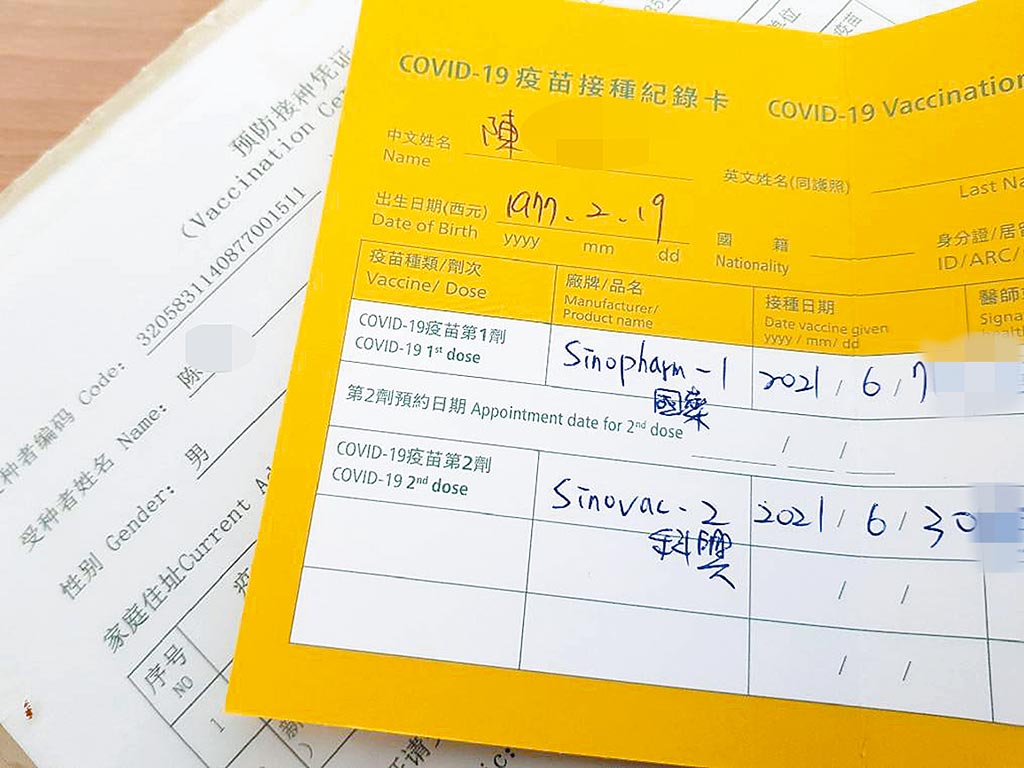 COVID-19 疫苗接種紀錄卡 COVID-19 Vaccination
中文姓名 陳
Name
英文姓名(同護照)
Last Na
出生日期(西元) 1977.2.19
Date of Birth yyyy mm dd
國 籍
Nationality
身分證/居留
ID/ARC/
疫苗種類/劑次
Vaccine/ Dose
廠牌/品名
Manufacturer/
Product name
接種日期
Date vaccine given
yyyy / mm/ dd
醫師
Signa
COVID-19疫苗第1劑
COVID-19 1st dose
Sinopharm-1
國藥
2021 / 6 / 7
第2劑預約日期 Appointment date for 2nd dose / /
COVID-19疫苗第2劑
COVID-19 2nd dose
Sinovac-2
科興
2021 / 6 / 30
/ /
/ /
预防接种凭证
(Vaccination Ce
种者编码 Code: 3205831140877001511
受种者姓名 Name: 陈
性别 Gender: 男
家庭住址Current Ad
序号
NO
1
疫苗
单位